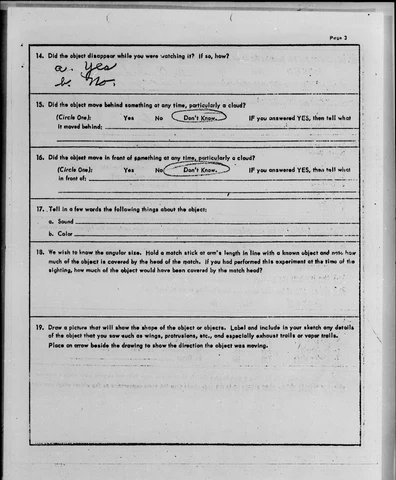 Page 3
14. Did the object disappear while you were watching it? If so, how?
a. Yes
b. No.
15. Did the object move behind something at any time, particularly a cloud?
(Circle One): Yes No Don't Know. IF you answered YES, then tell what
it moved behind:
16. Did the object move in front of something at any time, particularly a cloud?
(Circle One): Yes No Don't Know. IF you answered YES, then tell what
in front of:
17. Tell in a few words the following things about the object:
a. Sound
b. Color
18. We wish to know the angular size. Hold a match stick at arm's length in line with a known object and note how
much of the object is covered by the head of the match. If you had performed this experiment at the time of the
sighting, how much of the object would have been covered by the match head?
19. Draw a picture that will show the shape of the object or objects. Label and include in your sketch any details
of the object that you saw such as wings, protrusions, etc., and especially exhaust trails or vapor trails.
Place an arrow beside the drawing to show the direction the object was moving.